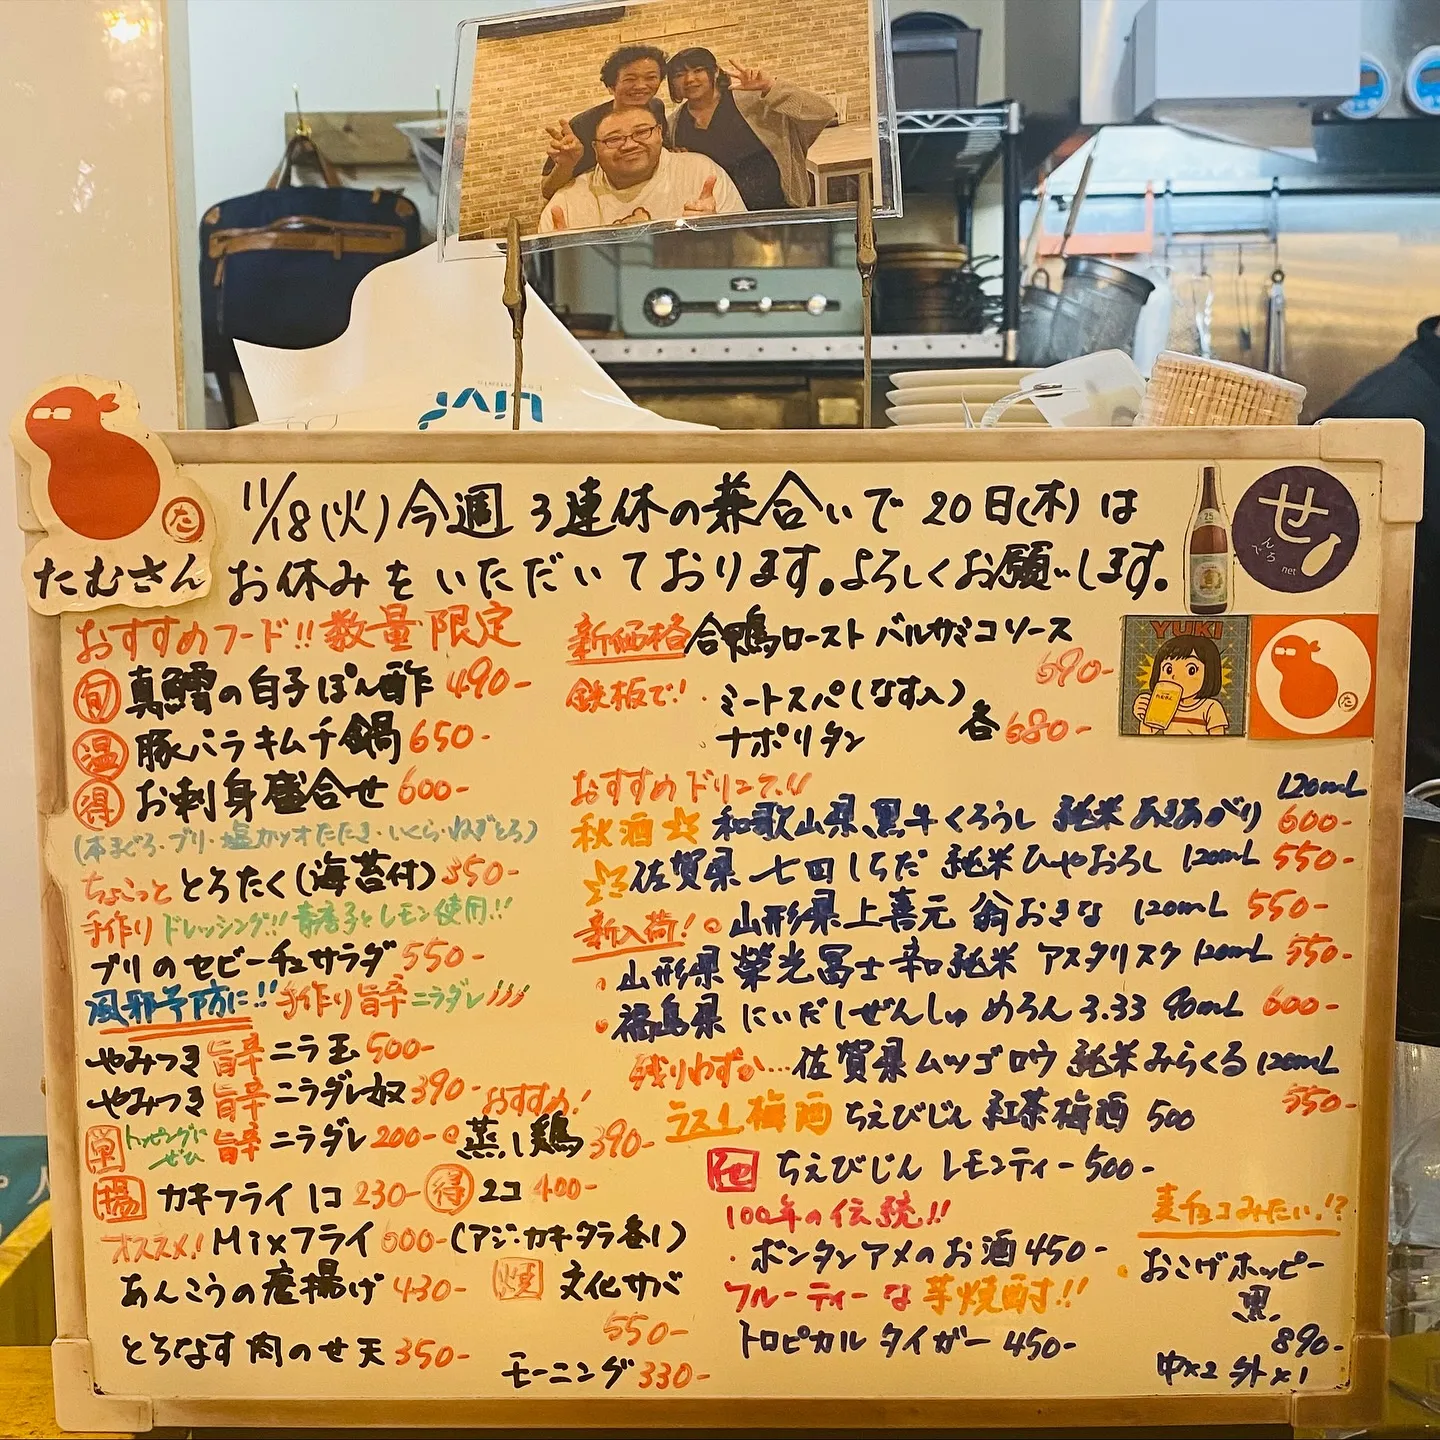 11/18(火)今週3連休の兼合いで20日(木)は
お休みをいただいております。よろしくお願いします。
たむさん
せ
でんち
net
YUKI
おすすめフード!!数量限定
旬 真鱈の白子ぽん酢 490-
温 豚バラキムチ鍋 650-
得 お刺身盛合せ 600-
(本まぐろ・ブリ・塩カツオたたき・いくら・ねぎとろ)
ちょこっと とろたく(海苔付) 350-
手作りドレッシング!! 青唐子とレモン使用!!
ブリのセビーチェサラダ 550-
風邪予防に!! 手作り旨辛ニラダレ!!!
やみつき旨辛ニラ玉 500-
やみつき旨辛ニラダレ奴 390-
単 トッピングにぜひ 旨辛ニラダレ 200-
おすすめ!
蒸し鶏 390-
揚 カキフライ 1コ 230- 得 2コ 400-
オススメ! Mixフライ 600-(アジ・カキ・タラ香り)
あんこうの唐揚げ 430-
とろなす肉のせ天 350-
焼 文化サバ
550-
モーニング 330-
新価格 合鴨ロースト バルサミコソース
690-
鉄板で! ・ミートスパ(なす入)
・ナポリタン 各680-
おすすめドリンク!!
秋酒☆ 和歌山県 黒牛くろうし 純米 あきあがり 120mL 600-
佐賀県 七田しちだ 純米ひやおろし 120mL 550-
新入荷! 山形県 上喜元 翁おきな 120mL 550-
・山形県 榮光冨士 辛口純米 アスタリスク 120mL 550-
・福島県 にいだしぜんしゅ めろん3.33 90mL 600-
残りわずか…佐賀県 ムツゴロウ 純米みらくる 120mL
550-
ラス1 梅酒 ちえびじん 紅茶梅酒 500
他 ちえびじん レモンティー 500-
100年の伝統!!
・ボンタンアメのお酒 450-
フルーティーな芋焼酎!!
トロピカル タイガー 450-
麦チョコみたい!?
・おこげホッピー
黒
890-
中×2 外×1